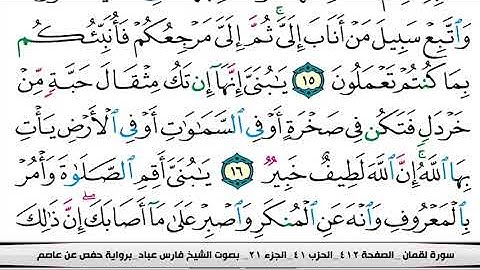 وَٱتَّبِعْ سَبِيلَ مَنْ أَنَابَ إِلَىَّۚ ثُمَّ إِلَىَّ مَرْجِعُكُمْ فَأُنَبِّئُكُم
بِمَا كُنتُمْ تَعْمَلُونَ ١٥ يَـٰبُنَىَّ إِنَّهَآ إِن تَكُ مِثْقَالَ حَبَّةٍ مِّنْ
خَرْدَلٍ فَتَكُن فِى صَخْرَةٍ أَوْ فِى ٱلسَّمَـٰوَٰتِ أَوْ فِى ٱلْأَرْضِ يَأْتِ
بِهَا ٱللَّهُۚ إِنَّ ٱللَّهَ لَطِيفٌ خَبِيرٌ ١٦ يَـٰبُنَىَّ أَقِمِ ٱلصَّلَوٰةَ وَأْمُرْ
بِٱلْمَعْرُوفِ وَٱنْهَ عَنِ ٱلْمُنكَرِ وَٱصْبِرْ عَلَىٰ مَآ أَصَابَكَۖ إِنَّ ذَٰلِكَ
سورة لقمان _ الصفحة ٤١٢ _ الحزب ٤١ _ الجزء ٢١ _ بصوت الشيخ فارس عباد _ برواية حفص عن عاصم